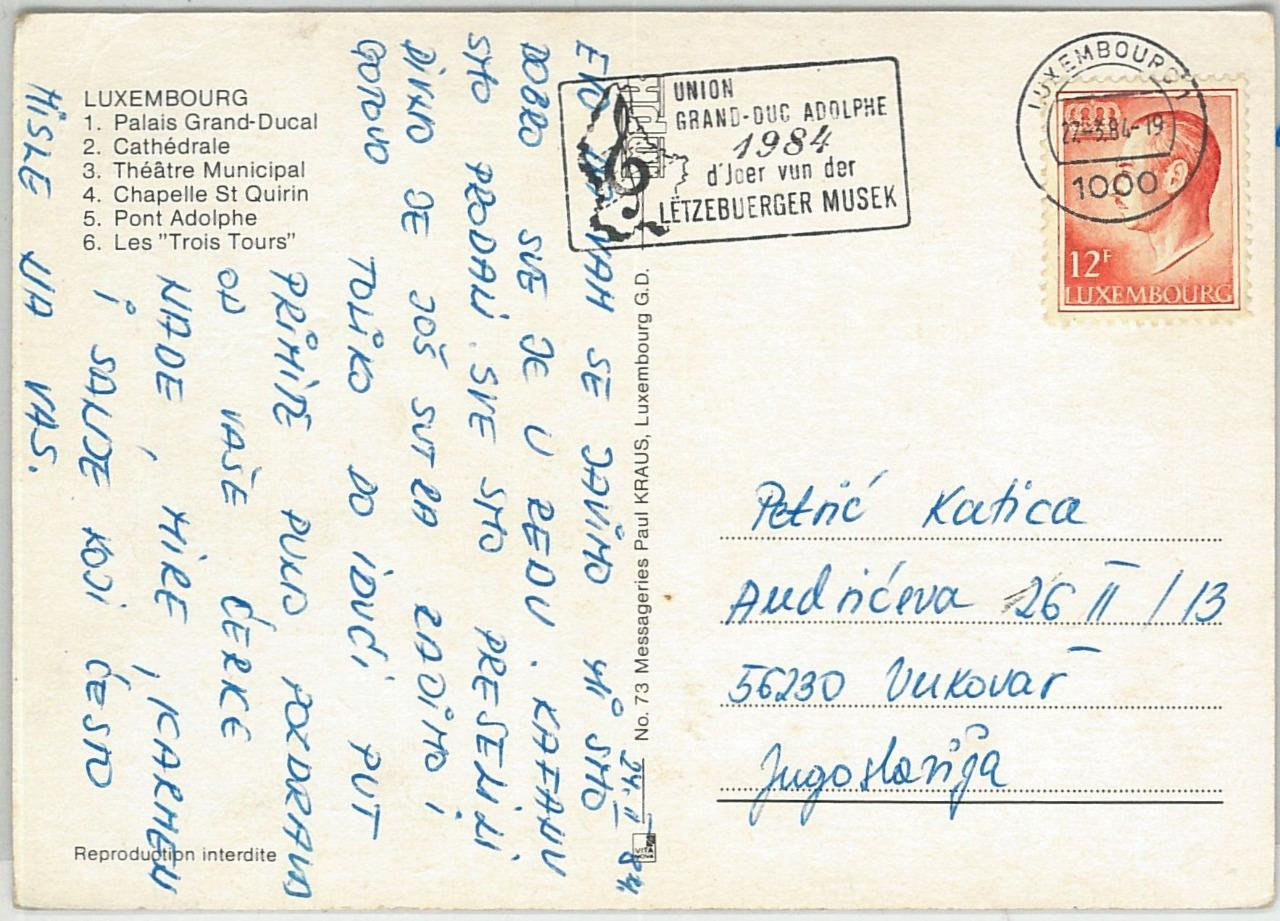 LUXEMBOURG
1. Palais Grand-Ducal
2. Cathédrale
3. Théâtre Municipal
4. Chapelle St Quirin
5. Pont Adolphe
6. Les "Trois Tours"
Reproduction interdite
24. II 84.
EVO DA VAM SE JAVIMO MI SMO
DOBRO SVE JE U REDU. KAFANU
SMO PRODALI. SVE SMO PRESELILI
DIVNO JE JOŠ SUTRA RADIMO I
GOTOVO TOLIKO DO IDUĆI PUT
PRIMITE PUNO POZDRAVA
OD VAŠE ĆERKE
NADE, MIRE, KARMEN
I SANJE KOJI ČESTO
MISLE NA VAS.
No. 73 Messageries Paul KRAUS, Luxembourg G.D.
VITA NOVA
UNION
GRAND-DUC ADOLPHE
1984
d'Joer vun der
LËTZEBUERGER MUSEK
LUXEMBOURG 1
22-3.84-19
1000
12F
LUXEMBOURG
Petrić Katica
Andrićeva 26 II / 13
56230 Vukovar
Jugoslavija